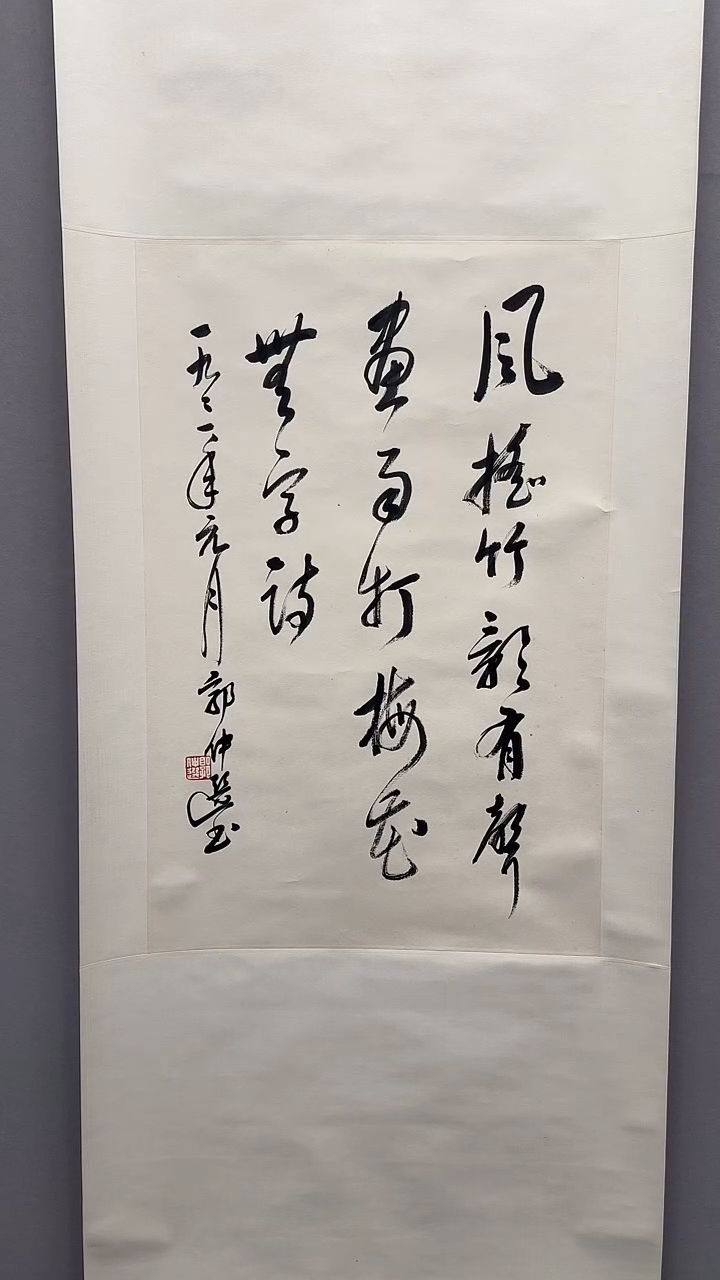 風搖竹影有聲
畫雨打梅花
無字詩
一九〻一年元月郭仲選书